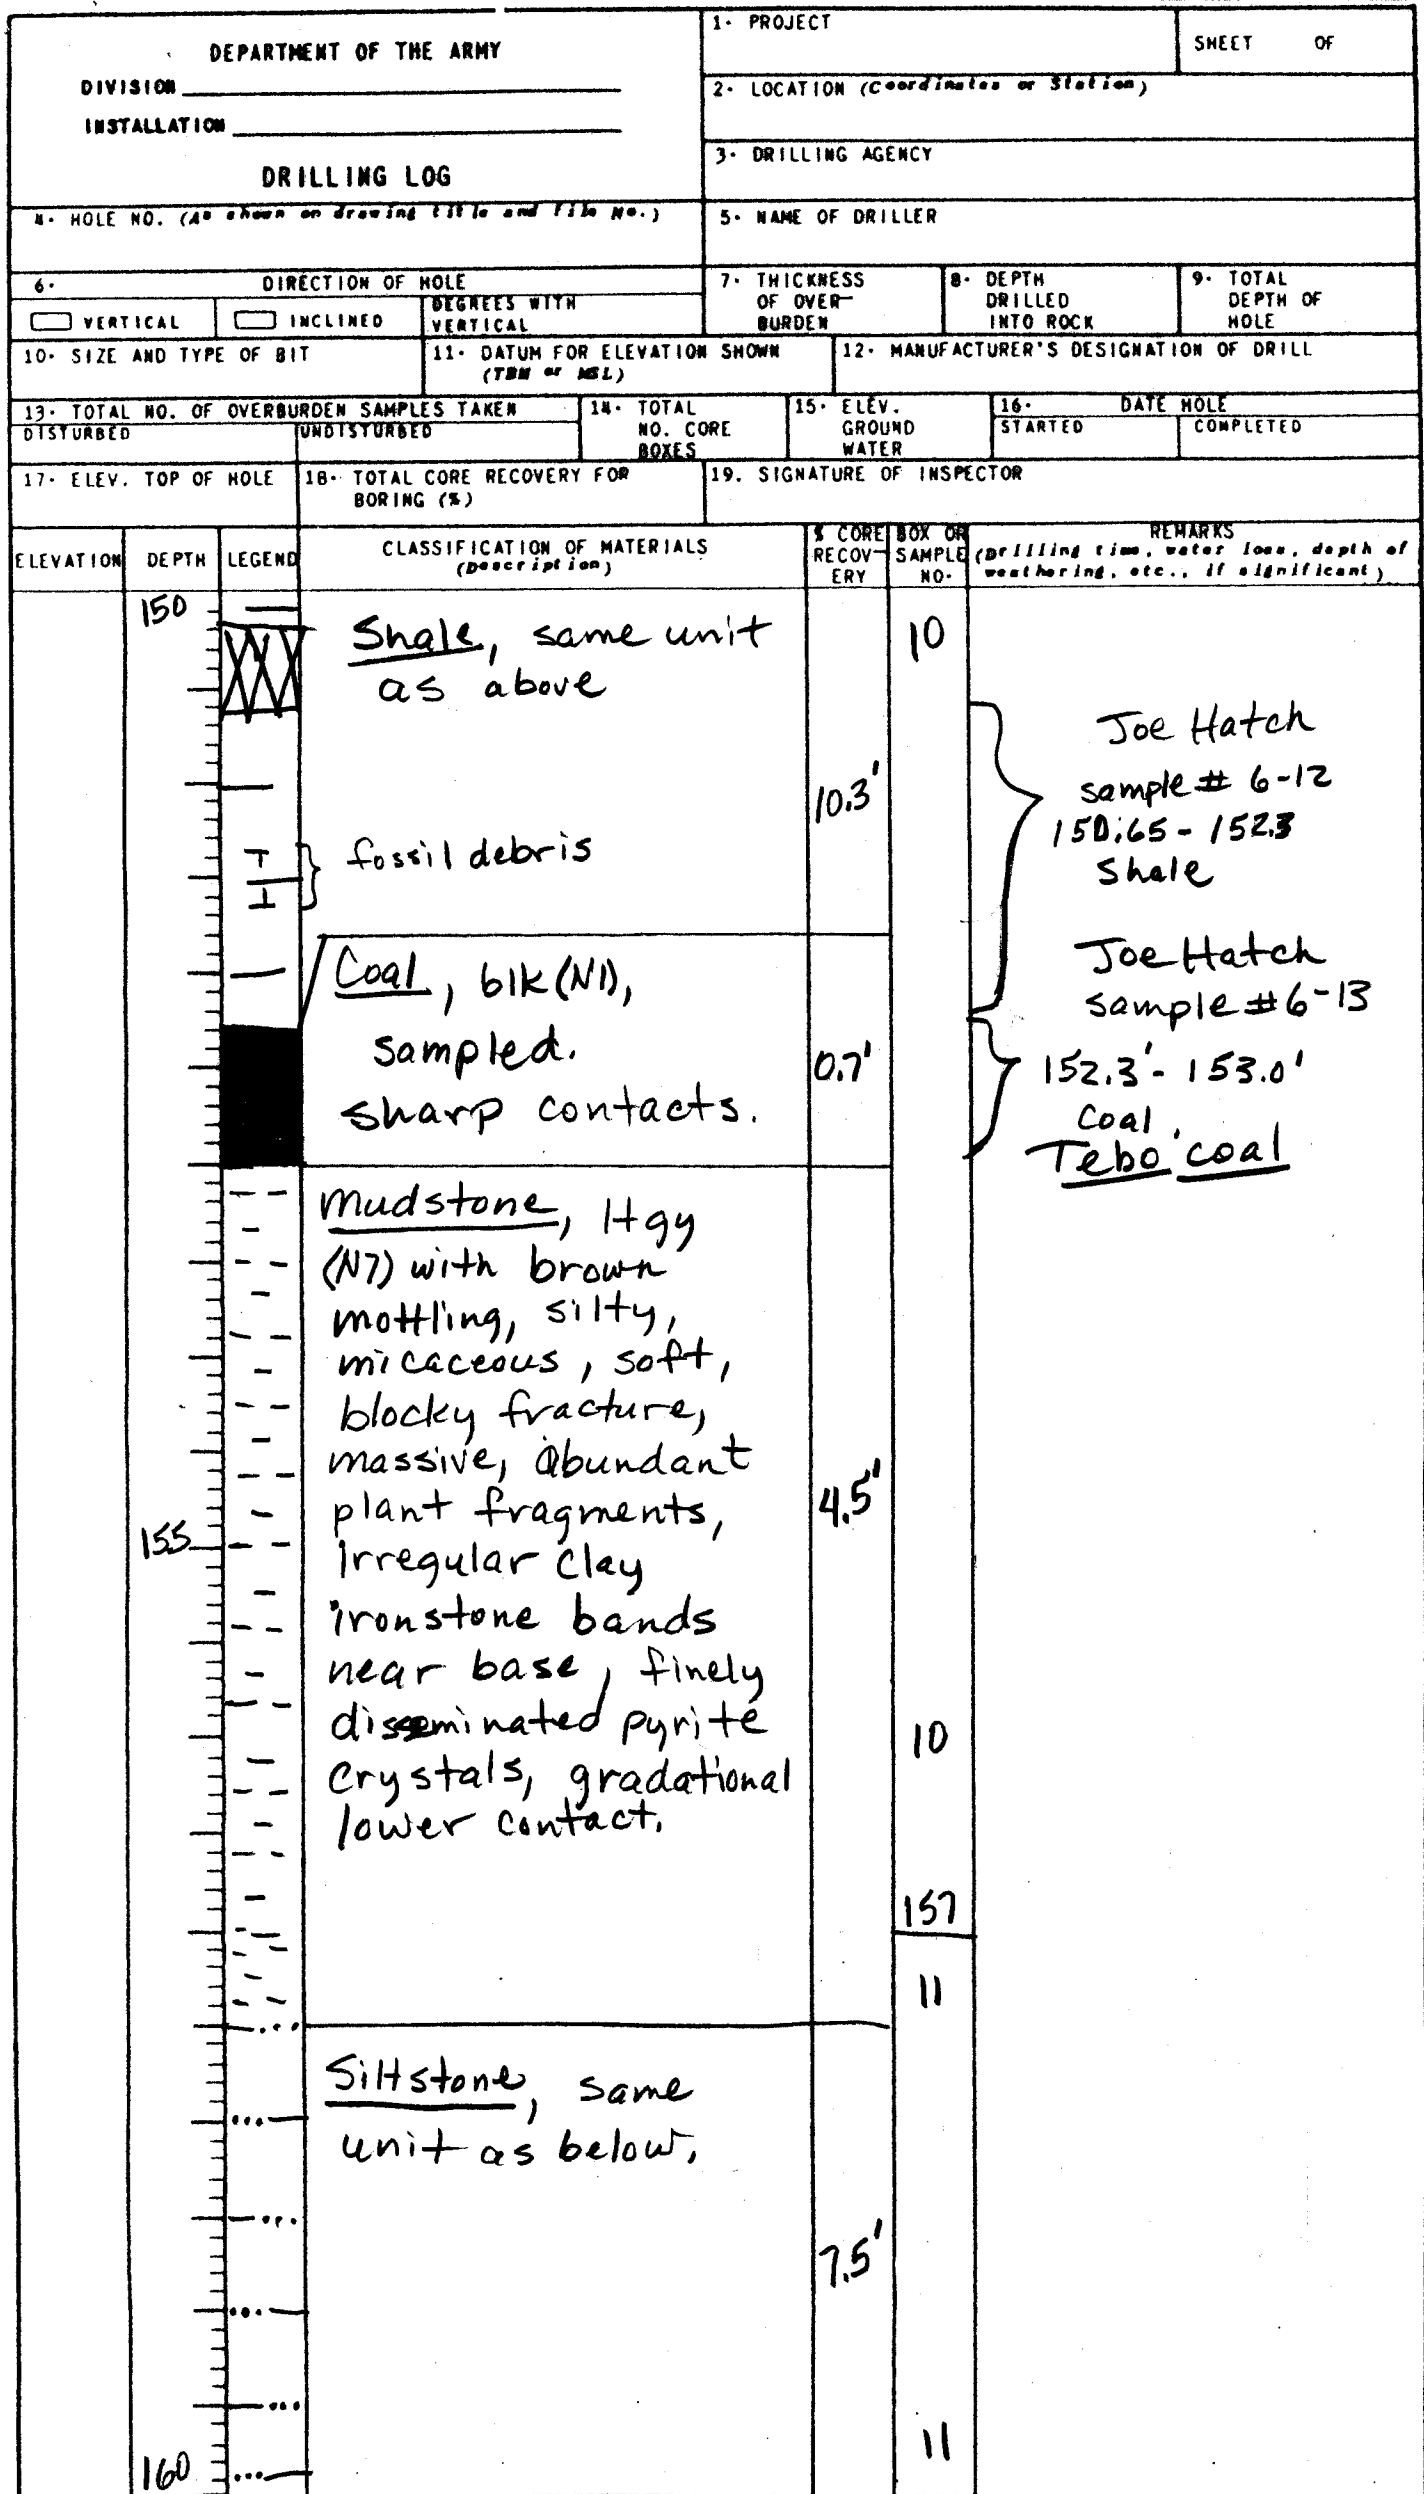 DEPARTMENT OF THE ARMY
DIVISION
INSTALLATION
DRILLING LOG
1. PROJECT
SHEET OF
2. LOCATION (Coordinates or Station)
3. DRILLING AGENCY
4. HOLE NO. (As shown on drawing title and file No.)
5. NAME OF DRILLER
6. DIRECTION OF HOLE
VERTICAL INCLINED DEGREES WITH VERTICAL
7. THICKNESS OF OVER-BURDEN
8. DEPTH DRILLED INTO ROCK
9. TOTAL DEPTH OF HOLE
10. SIZE AND TYPE OF BIT
11. DATUM FOR ELEVATION SHOWN (TBM or MSL)
12. MANUFACTURER'S DESIGNATION OF DRILL
13. TOTAL NO. OF OVERBURDEN SAMPLES TAKEN
DISTURBED UNDISTURBED
14. TOTAL NO. CORE BOXES
15. ELEV. GROUND WATER
16. DATE HOLE
STARTED COMPLETED
17. ELEV. TOP OF HOLE
18. TOTAL CORE RECOVERY FOR BORING (%)
19. SIGNATURE OF INSPECTOR
ELEVATION DEPTH LEGEND
CLASSIFICATION OF MATERIALS
(Description)
% CORE RECOV-ERY
BOX OR SAMPLE NO.
REMARKS
(Drilling time, water loss, depth of
weathering, etc., if significant)
150
Shale, same unit
as above
10
10.3'
Joe Hatch
sample # 6-12
150.65 - 152.3
Shale
fossil debris
Coal, blk (N1),
sampled.
sharp contacts.
0.7'
Joe Hatch
sample #6-13
152.3' - 153.0'
Coal
Tebo coal
Mudstone, lt gy
(N7) with brown
mottling, silty,
micaceous, soft,
blocky fracture,
massive, abundant
plant fragments,
irregular clay
ironstone bands
near base, finely
disseminated pyrite
crystals, gradational
lower contact.
4.5'
155
10
157
11
Siltstone, same
unit as below.
7.5'
11
160